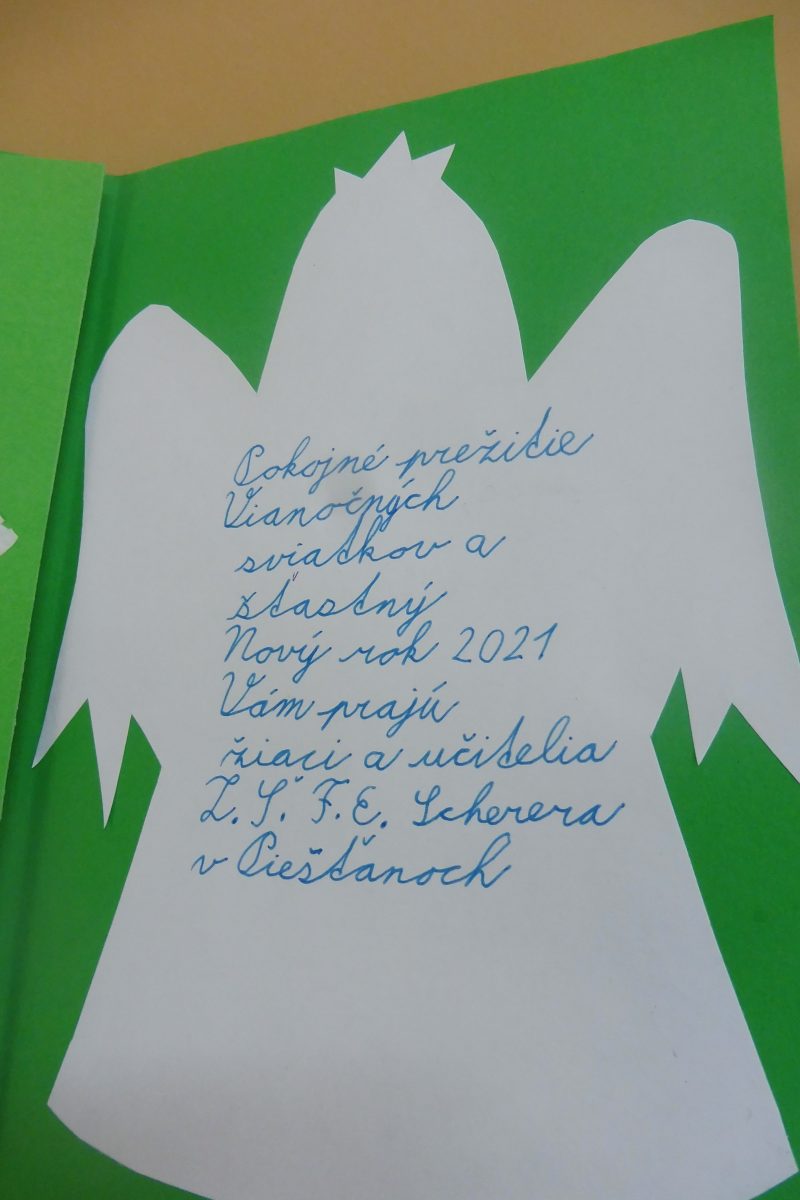 Pokojné prežitie
Vianočných
sviatkov a
šťastný
Nový rok 2021
Vám prajú
žiaci a učitelia
Z. Š. F. E. Scherera
v Piešťanoch